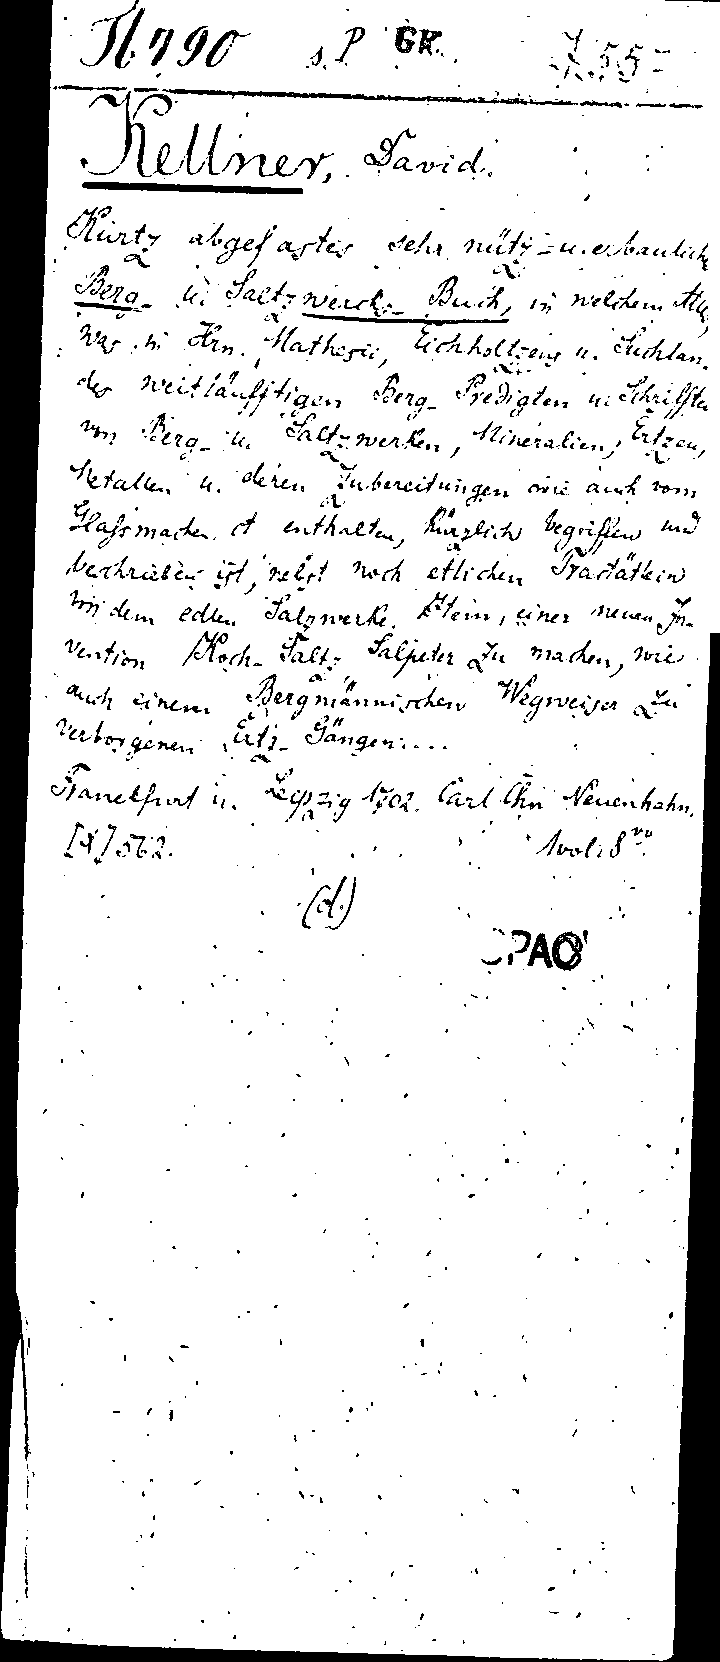 790 s. P GK.
Kellner, David.
Kurtz abgefastes sehr nütz- u. erbauliche
Berg- u. Saltzwercks- Buch, in welchem Alles,
was in Hrn. Mathesii, Eichholtzens u.
des weitläufftigen Berg- Predigten u. Schrifften
von Berg- u. Saltzwerken, Mineralien, Ertzen,
Metallen u. deren Zubereitungen wie auch vom
Glassmachen enthalten, kürzlich begriffen und
beschrieben ist, nebst noch etlichen Tractätlein
von dem edlen Salzwerke. einer neuen In-
vention Koch- Saltz Salpeter zu machen, wie
auch einem Bergmännischen Wegweiser zu
verborgenen Ertz- Gängen....
Franckfurt u. Leipzig 1702. Carl Chn Neuenhahn.
[X] 562. 1 vol: 8vo.
(d.)